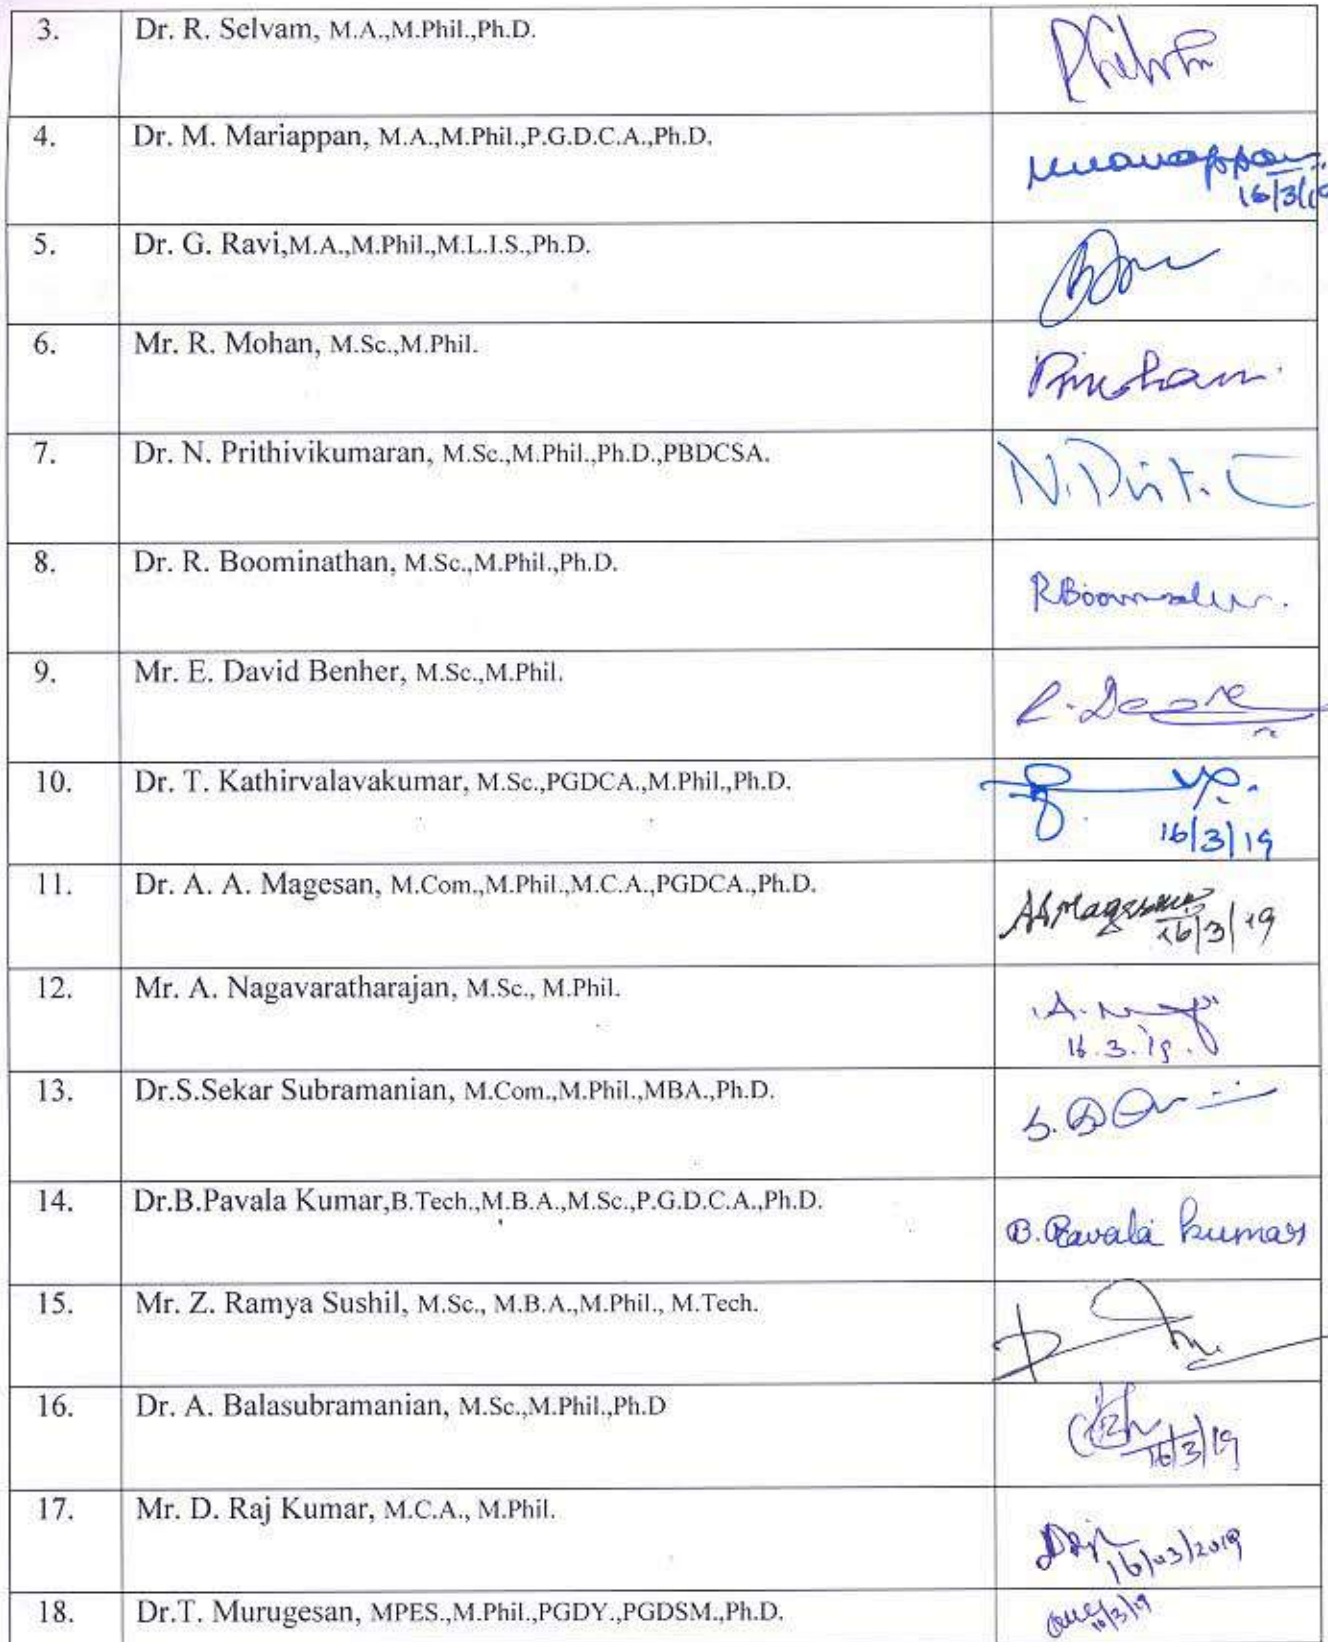 3. Dr. R. Selvam, M.A.,M.Phil.,Ph.D.
4. Dr. M. Mariappan, M.A.,M.Phil.,P.G.D.C.A.,Ph.D.
16/3/19
5. Dr. G. Ravi,M.A.,M.Phil.,M.L.I.S.,Ph.D.
6. Mr. R. Mohan, M.Sc.,M.Phil.
7. Dr. N. Prithivikumaran, M.Sc.,M.Phil.,Ph.D.,PBDCSA.
8. Dr. R. Boominathan, M.Sc.,M.Phil.,Ph.D.
9. Mr. E. David Benher, M.Sc.,M.Phil.
10. Dr. T. Kathirvalavakumar, M.Sc.,PGDCA.,M.Phil.,Ph.D.
16/3/19
11. Dr. A. A. Magesan, M.Com.,M.Phil.,M.C.A.,PGDCA.,Ph.D.
16/3/19
12. Mr. A. Nagavaratharajan, M.Sc., M.Phil.
16.3.19.
13. Dr.S.Sekar Subramanian, M.Com.,M.Phil.,MBA.,Ph.D.
14. Dr.B.Pavala Kumar,B.Tech.,M.B.A.,M.Sc.,P.G.D.C.A.,Ph.D.
B. Pavala Kumar
15. Mr. Z. Ramya Sushil, M.Sc., M.B.A.,M.Phil., M.Tech.
16. Dr. A. Balasubramanian, M.Sc.,M.Phil.,Ph.D
16/3/19
17. Mr. D. Raj Kumar, M.C.A., M.Phil.
16/03/2019
18. Dr.T. Murugesan, MPES.,M.Phil.,PGDY.,PGDSM.,Ph.D.
16/3/19